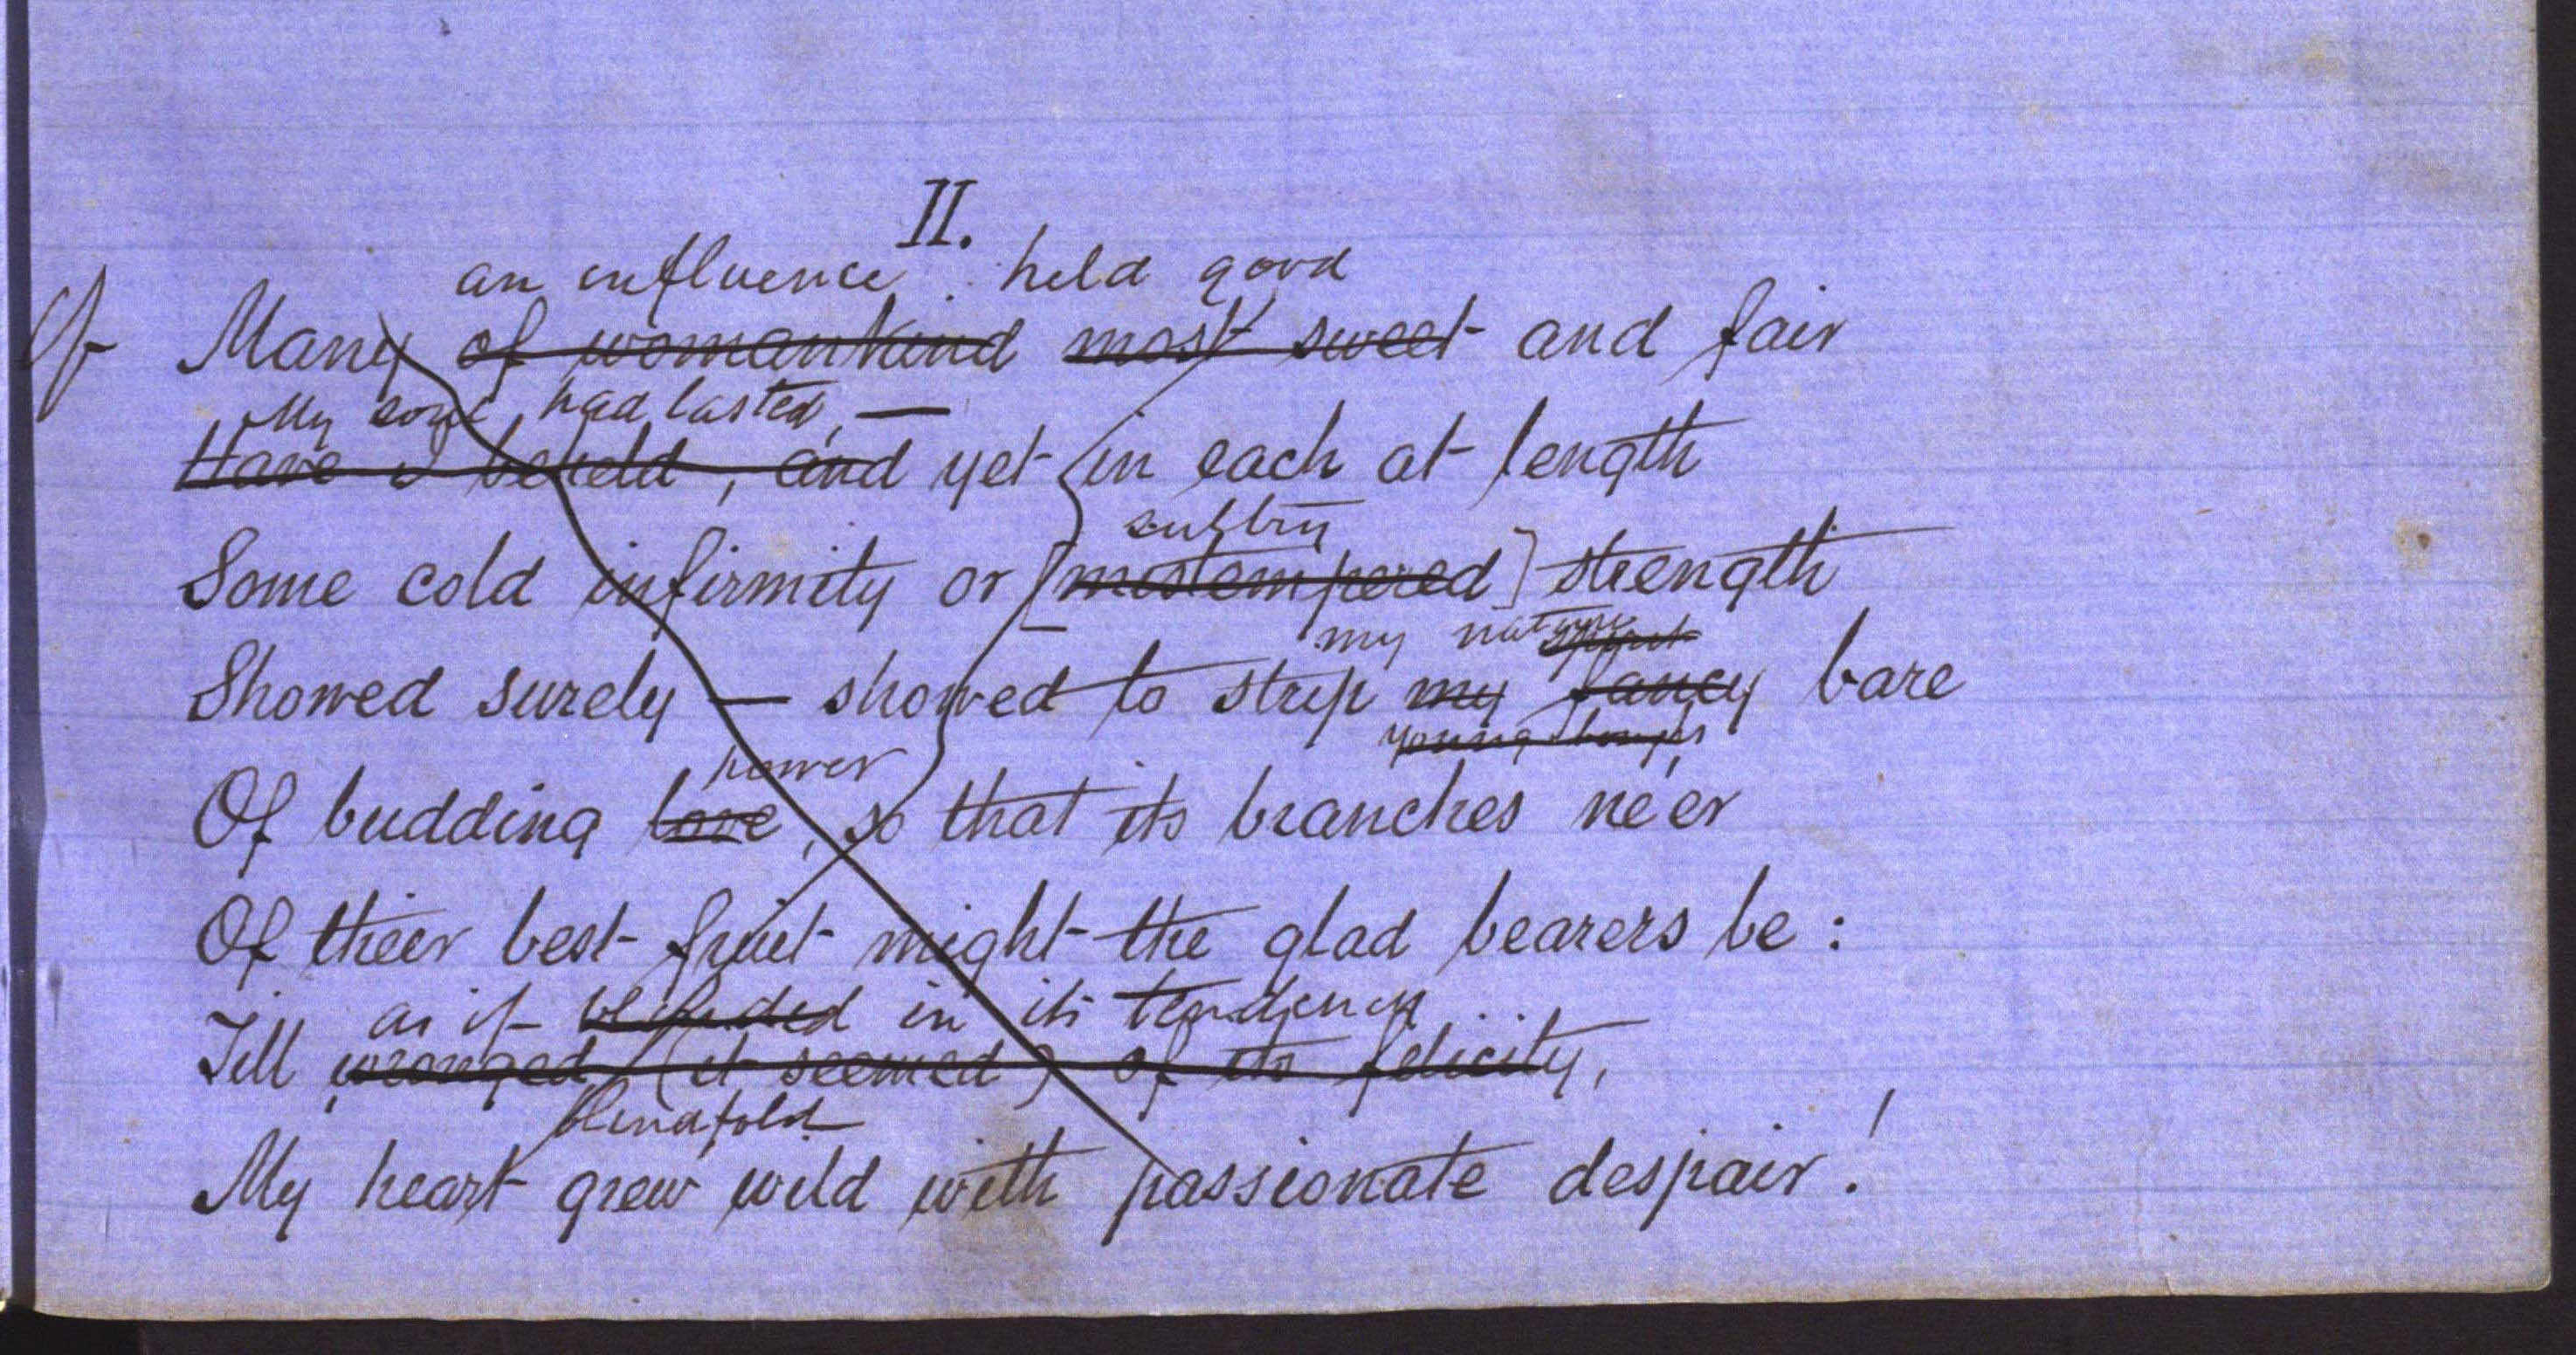 II.
an influence held good
Of Many of womankind most sweet and fair
My soul had lasted, —
Have I beheld, and yet in each at length
sultry
Some cold infirmity or [mistempered] strength
my nature spirit
Showed surely — showed to strip my fancy bare
young boughs
power
Of budding love, so that its branches ne'er
Of their best fruit might the glad bearers be:
as if blinded in its tendency
Till wronged (it seemed) of its felicity,
blindfold
My heart grew wild with passionate despair!